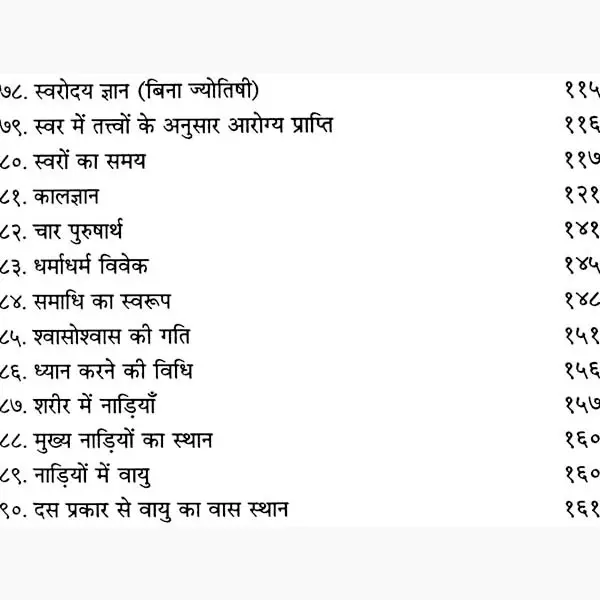 ७८. स्वरोदय ज्ञान (बिना ज्योतिषी) ११५
७९. स्वर में तत्त्वों के अनुसार आरोग्य प्राप्ति ११६
८०. स्वरों का समय ११७
८१. कालज्ञान १२१
८२. चार पुरुषार्थ १४१
८३. धर्माधर्म विवेक १४५
८४. समाधि का स्वरूप १४८
८५. श्वासोश्वास की गति १५१
८६. ध्यान करने की विधि १५६
८७. शरीर में नाड़ियाँ १५७
८८. मुख्य नाड़ियों का स्थान १६०
८९. नाड़ियों में वायु १६०
९०. दस प्रकार से वायु का वास स्थान १६१